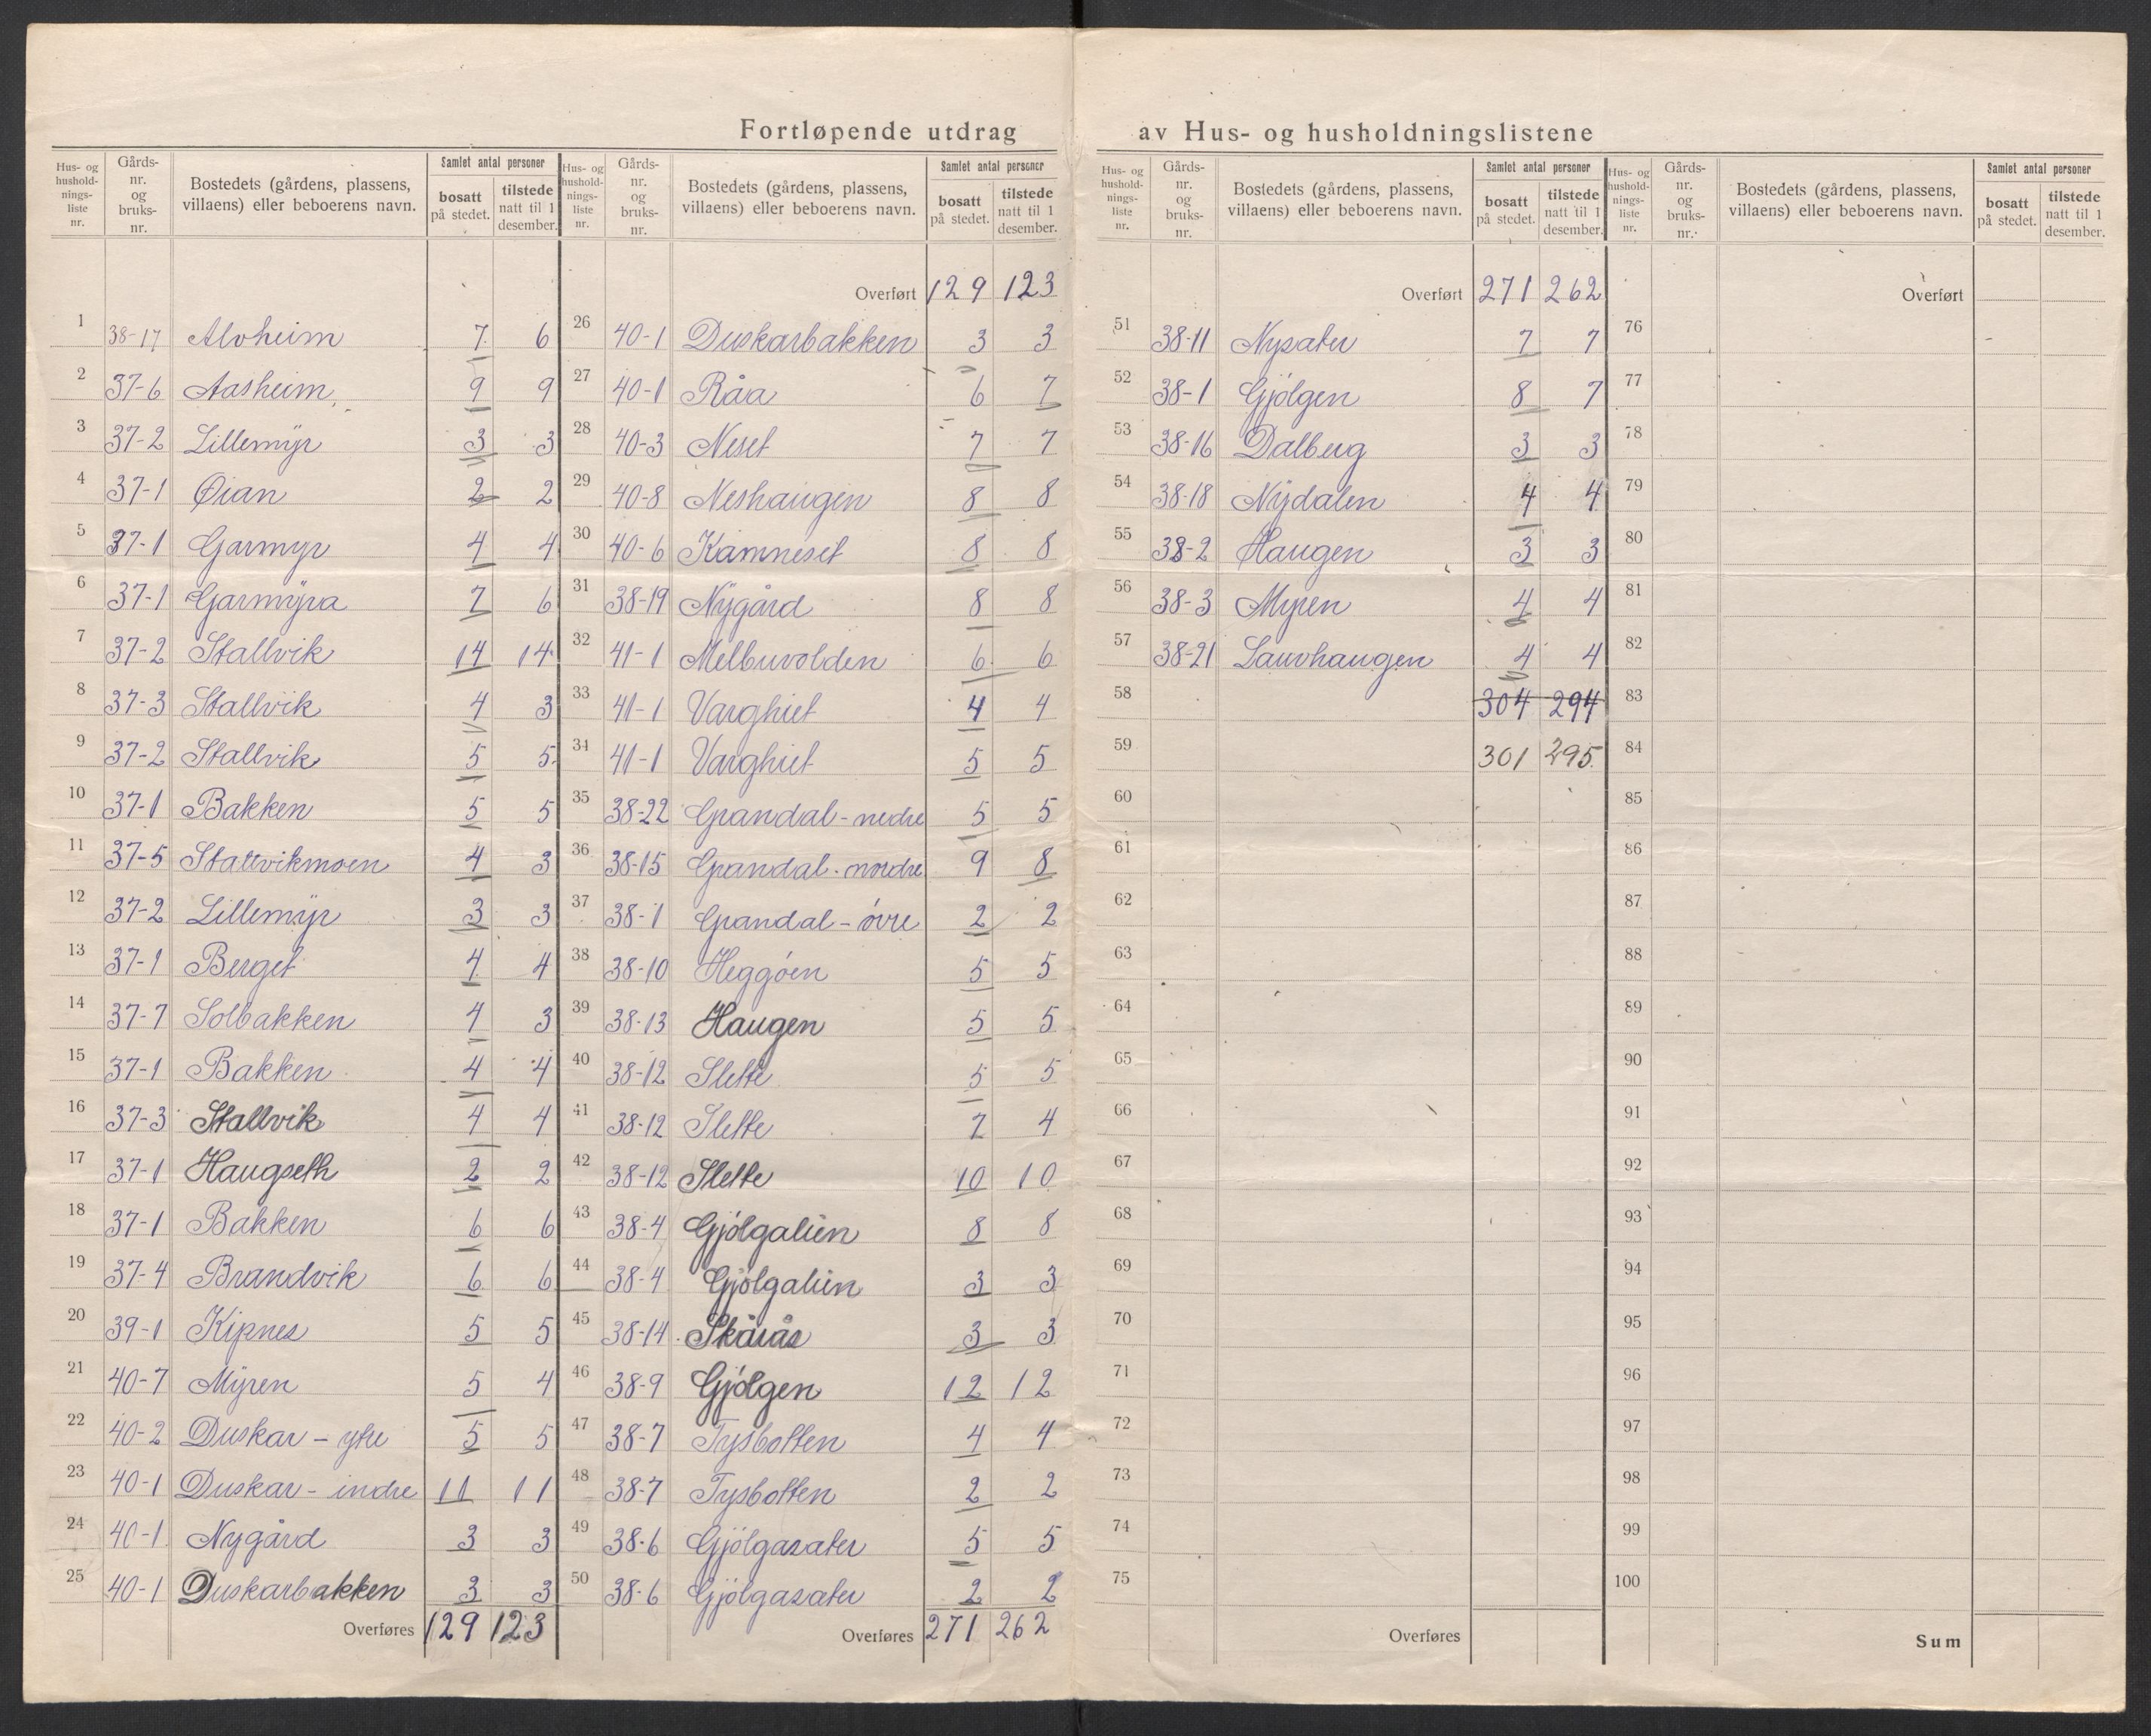 Fortløpende utdrag av Hus- og husholdningslistene
Hus- og husholdnings-liste nr. | Gårds-nr. og bruks-nr. | Bostedets (gårdens, plassens, villaens) eller beboerens navn. | Samlet antal personer | bosatt på stedet. | tilstede natt til 1 desember.
1 38-17 Alvheim 7 6
2 37-6 Aasheim 9 9
3 37-2 Lillemyr 3 3
4 37-1 Øian 2 2
5 37-1 Garmyr 4 4
6 37-1 Garmyra 7 6
7 37-2 Stallvik 14 14
8 37-3 Stallvik 4 3
9 37-2 Stallvik 5 5
10 37-1 Bakken 5 5
11 37-5 Stallvikmoen 4 3
12 37-2 Lillemyr 3 3
13 37-1 Berget 4 4
14 37-7 Solbakken 4 3
15 37-1 Bakken 4 4
16 37-3 Stallvik 4 4
17 37-1 Haugseth 2 2
18 37-1 Bakken 6 6
19 37-4 Brandvik 6 6
20 39-1 Kipnes 5 5
21 40-7 Myren 5 4
22 40-2 Duskar - ytre 5 5
23 40-1 Duskar - indre 11 11
24 40-1 Nygård 3 3
25 40-1 Duskarbakken 3 3
Overføres 129 123
Hus- og husholdnings-liste nr. | Gårds-nr. og bruks-nr. | Bostedets (gårdens, plassens, villaens) eller beboerens navn. | Samlet antal personer | bosatt på stedet. | tilstede natt til 1 desember.
Overført 129 123
26 40-1 Duskarbakken 3 3
27 40-1 Råa 6 7
28 40-3 Neset 7 7
29 40-8 Neshaugen 8 8
30 40-6 Kamneset 8 8
31 38-19 Nygård 8 8
32 41-1 Melbuvolden 6 6
33 41-1 Varghiet 4 4
34 41-1 Varghiet 5 5
35 38-22 Grandal - nedre 5 5
36 38-15 Grandal - nordre 9 8
37 38-1 Grandal - övre 2 2
38 38-10 Heggöen 5 5
39 38-13 Haugen 5 5
40 38-12 Slette 5 5
41 38-12 Slette 7 4
42 38-12 Slette 10 10
43 38-4 Gjölgalien 8 8
44 38-4 Gjölgalien 3 3
45 38-14 Skårås 3 3
46 38-9 Gjölgen 12 12
47 38-7 Tysbotten 4 4
48 38-7 Tysbotten 2 2
49 38-6 Gjölgasæter 5 5
50 38-6 Gjölgasæter 2 2
Overføres 271 262
Hus- og husholdnings-liste nr. | Gårds-nr. og bruks-nr. | Bostedets (gårdens, plassens, villaens) eller beboerens navn. | Samlet antal personer | bosatt på stedet. | tilstede natt til 1 desember.
Overført 271 262
51 38-11 Nysæter 7 7
52 38-1 Gjölgen 8 7
53 38-16 Dalberg 3 3
54 38-18 Nydalen 4 4
55 38-2 Haugen 3 3
56 38-3 Myren 4 4
57 38-21 Lauvhaugen 4 4
58 304 294
59 301 295
60
61
62
63
64
65
66
67
68
69
70
71
72
73
74
75
Overføres
Hus- og husholdnings-liste nr. | Gårds-nr. og bruks-nr. | Bostedets (gårdens, plassens, villaens) eller beboerens navn. | Samlet antal personer | bosatt på stedet. | tilstede natt til 1 desember.
Overført
76
77
78
79
80
81
82
83
84
85
86
87
88
89
90
91
92
93
94
95
96
97
98
99
100
Sum